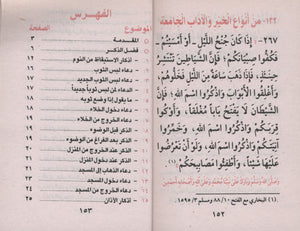 ١٣٢- من أنواع الخير والآداب الجامعة
٢٦٧- إِذَا كَانَ جُنْحُ اللَّيْلِ - أَوْ أَمْسَيْتُمْ -
فَكُفُّوا صِبْيَانَكُمْ، فَإِنَّ الشَّيَاطِينَ تَنْتَشِرُ
وَأَغْلِقُوا الأَبْوَابَ وَاذْكُرُوا اسْمَ اللهِ، فَإِنَّ
الشَّيْطَانَ لَا يَفْتَحُ بَاباً مُغْلَقاً، وَأَوْكُوا
قِرَبَكُمْ وَاذْكُرُوا اسْمَ اللهِ، وَخَمِّرُوا
آنِيَتَكُمْ وَاذْكُرُوا اسْمَ اللهِ، وَلَوْ أَنْ تَعْرُضُوا
عَلَيْهَا شَيْئاً، وَأَطْفِئُوا مَصَابِيحَكُمْ (١)
(١) البخاري مع الفتح ٨٨/١٠ ومسلم ١٥٩٥/٣.
١٥٢
الفهرس
الموضوع الصفحة
المقدمة
فضل الذكر ٦
أذكار الاستيقاظ من النوم
دعاء لبس الثوب
دعاء لبس الثوب الجديد
الدعاء لمن لبس ثوباً جديداً
ما يقول إذا وضع ثوبه
دعاء دخول الخلاء
دعاء الخروج من الخلاء
الذكر قبل الوضوء
الذكر بعد الفراغ من الوضوء
الذكر عند الخروج من المنزل
الذكر عند دخول المنزل
دعاء الذهاب إلى المسجد
دعاء دخول المسجد
دعاء الخروج من المسجد
أذكار الأذان ٢٥
١٥٣